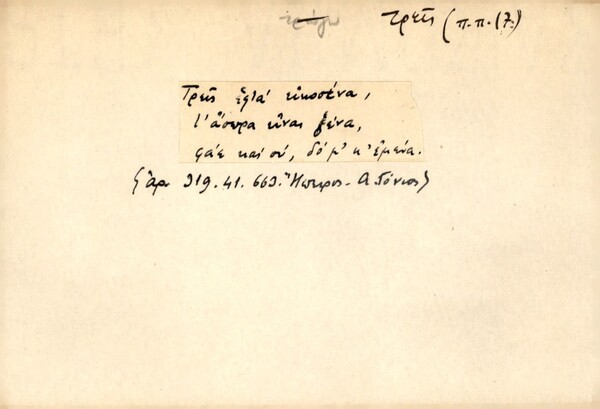 τρώγω τρεῖς (π.π. 17)
Τρεῖς ἑφτά εἰκοσένα,
τ' ἄσπρα εἶναι ξένα,
φάε καί σύ, δό μ' κ' ἐμένα.
(ἀρ. 319. 41. 663. Ἤπειρος - Α.